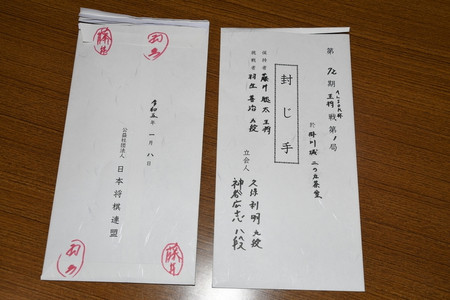 第72期 ALSOK杯 王将戦第1局
於 掛川城 二の丸茶室
封じ手
保持者 藤井聡太 王将
挑戦者 羽生善治 九段
立会人 久保利明 九段
神谷広志 八段
羽生
藤井
令和五年一月八日
公益社団法人 日本将棋連盟
藤井
羽生